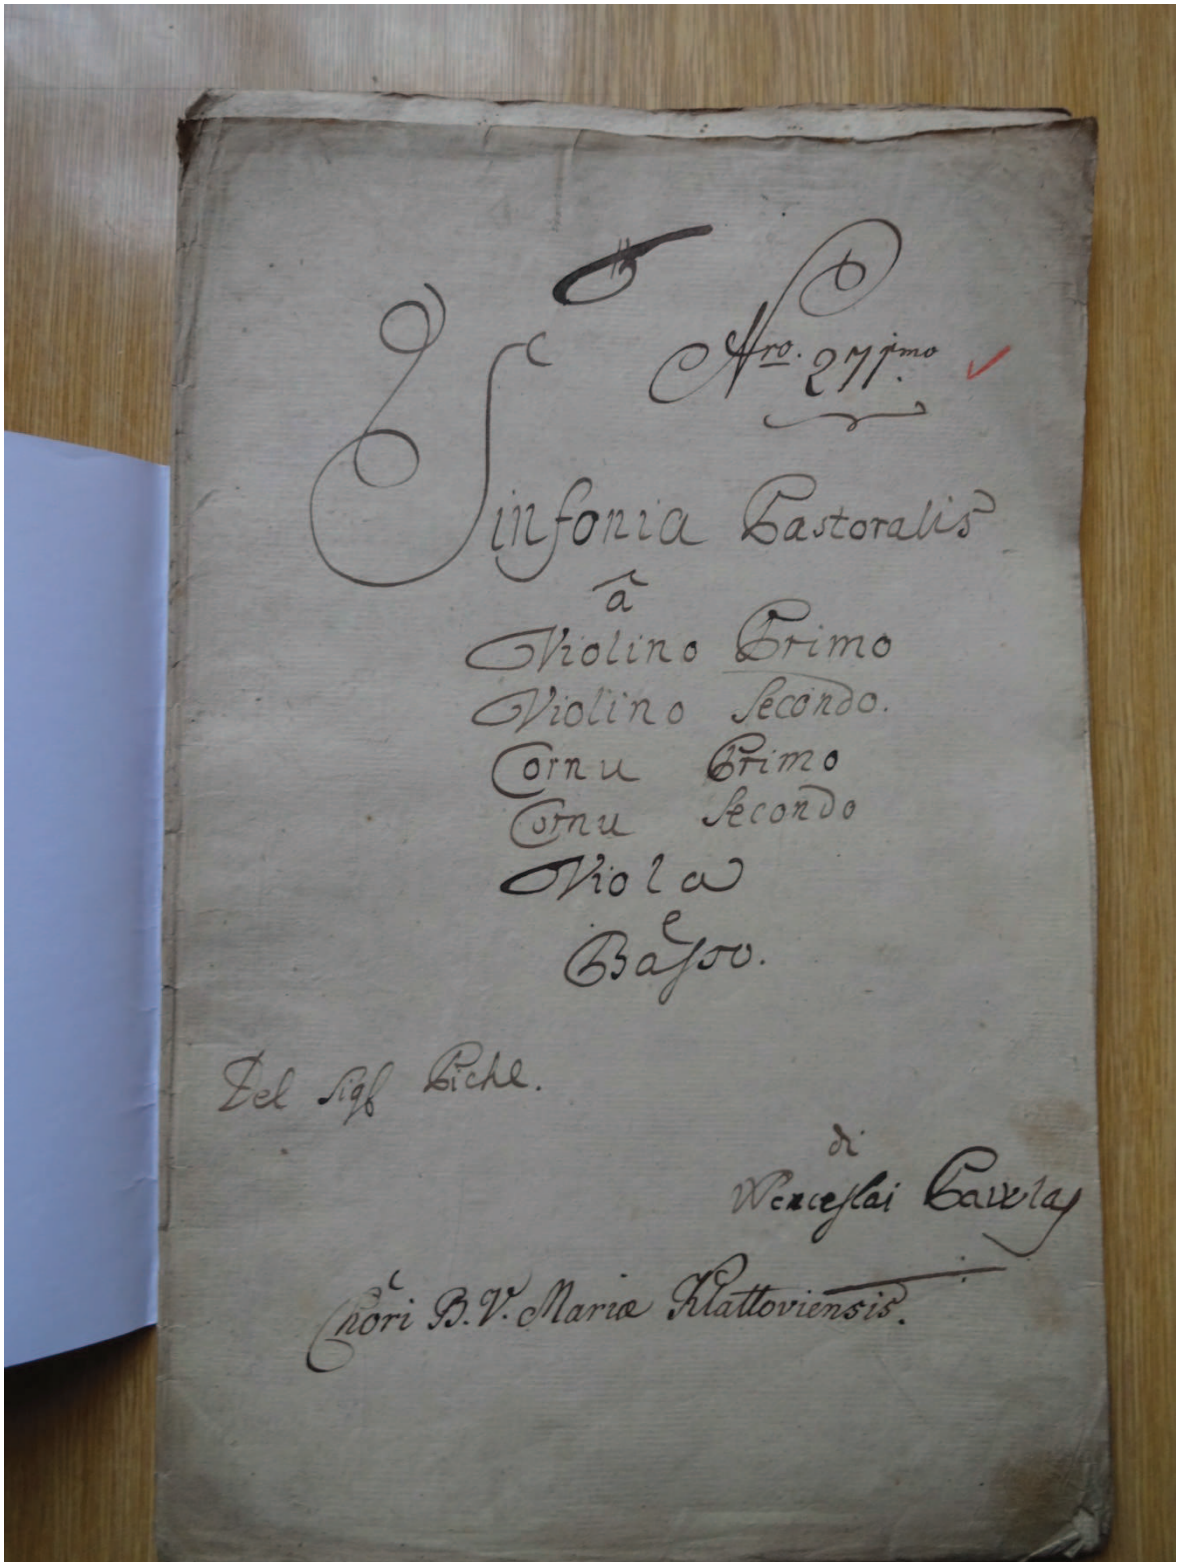 Nro. 271mo
Sinfonia Pastoralis
â
Violino Primo
Violino Secondo.
Cornu Primo
Cornu Secondo
Viola
e
Basso.
Del Sigr Pichl.
di
Wenceslai Pavelas
Chori B. V. Mariæ Klattoviensis.